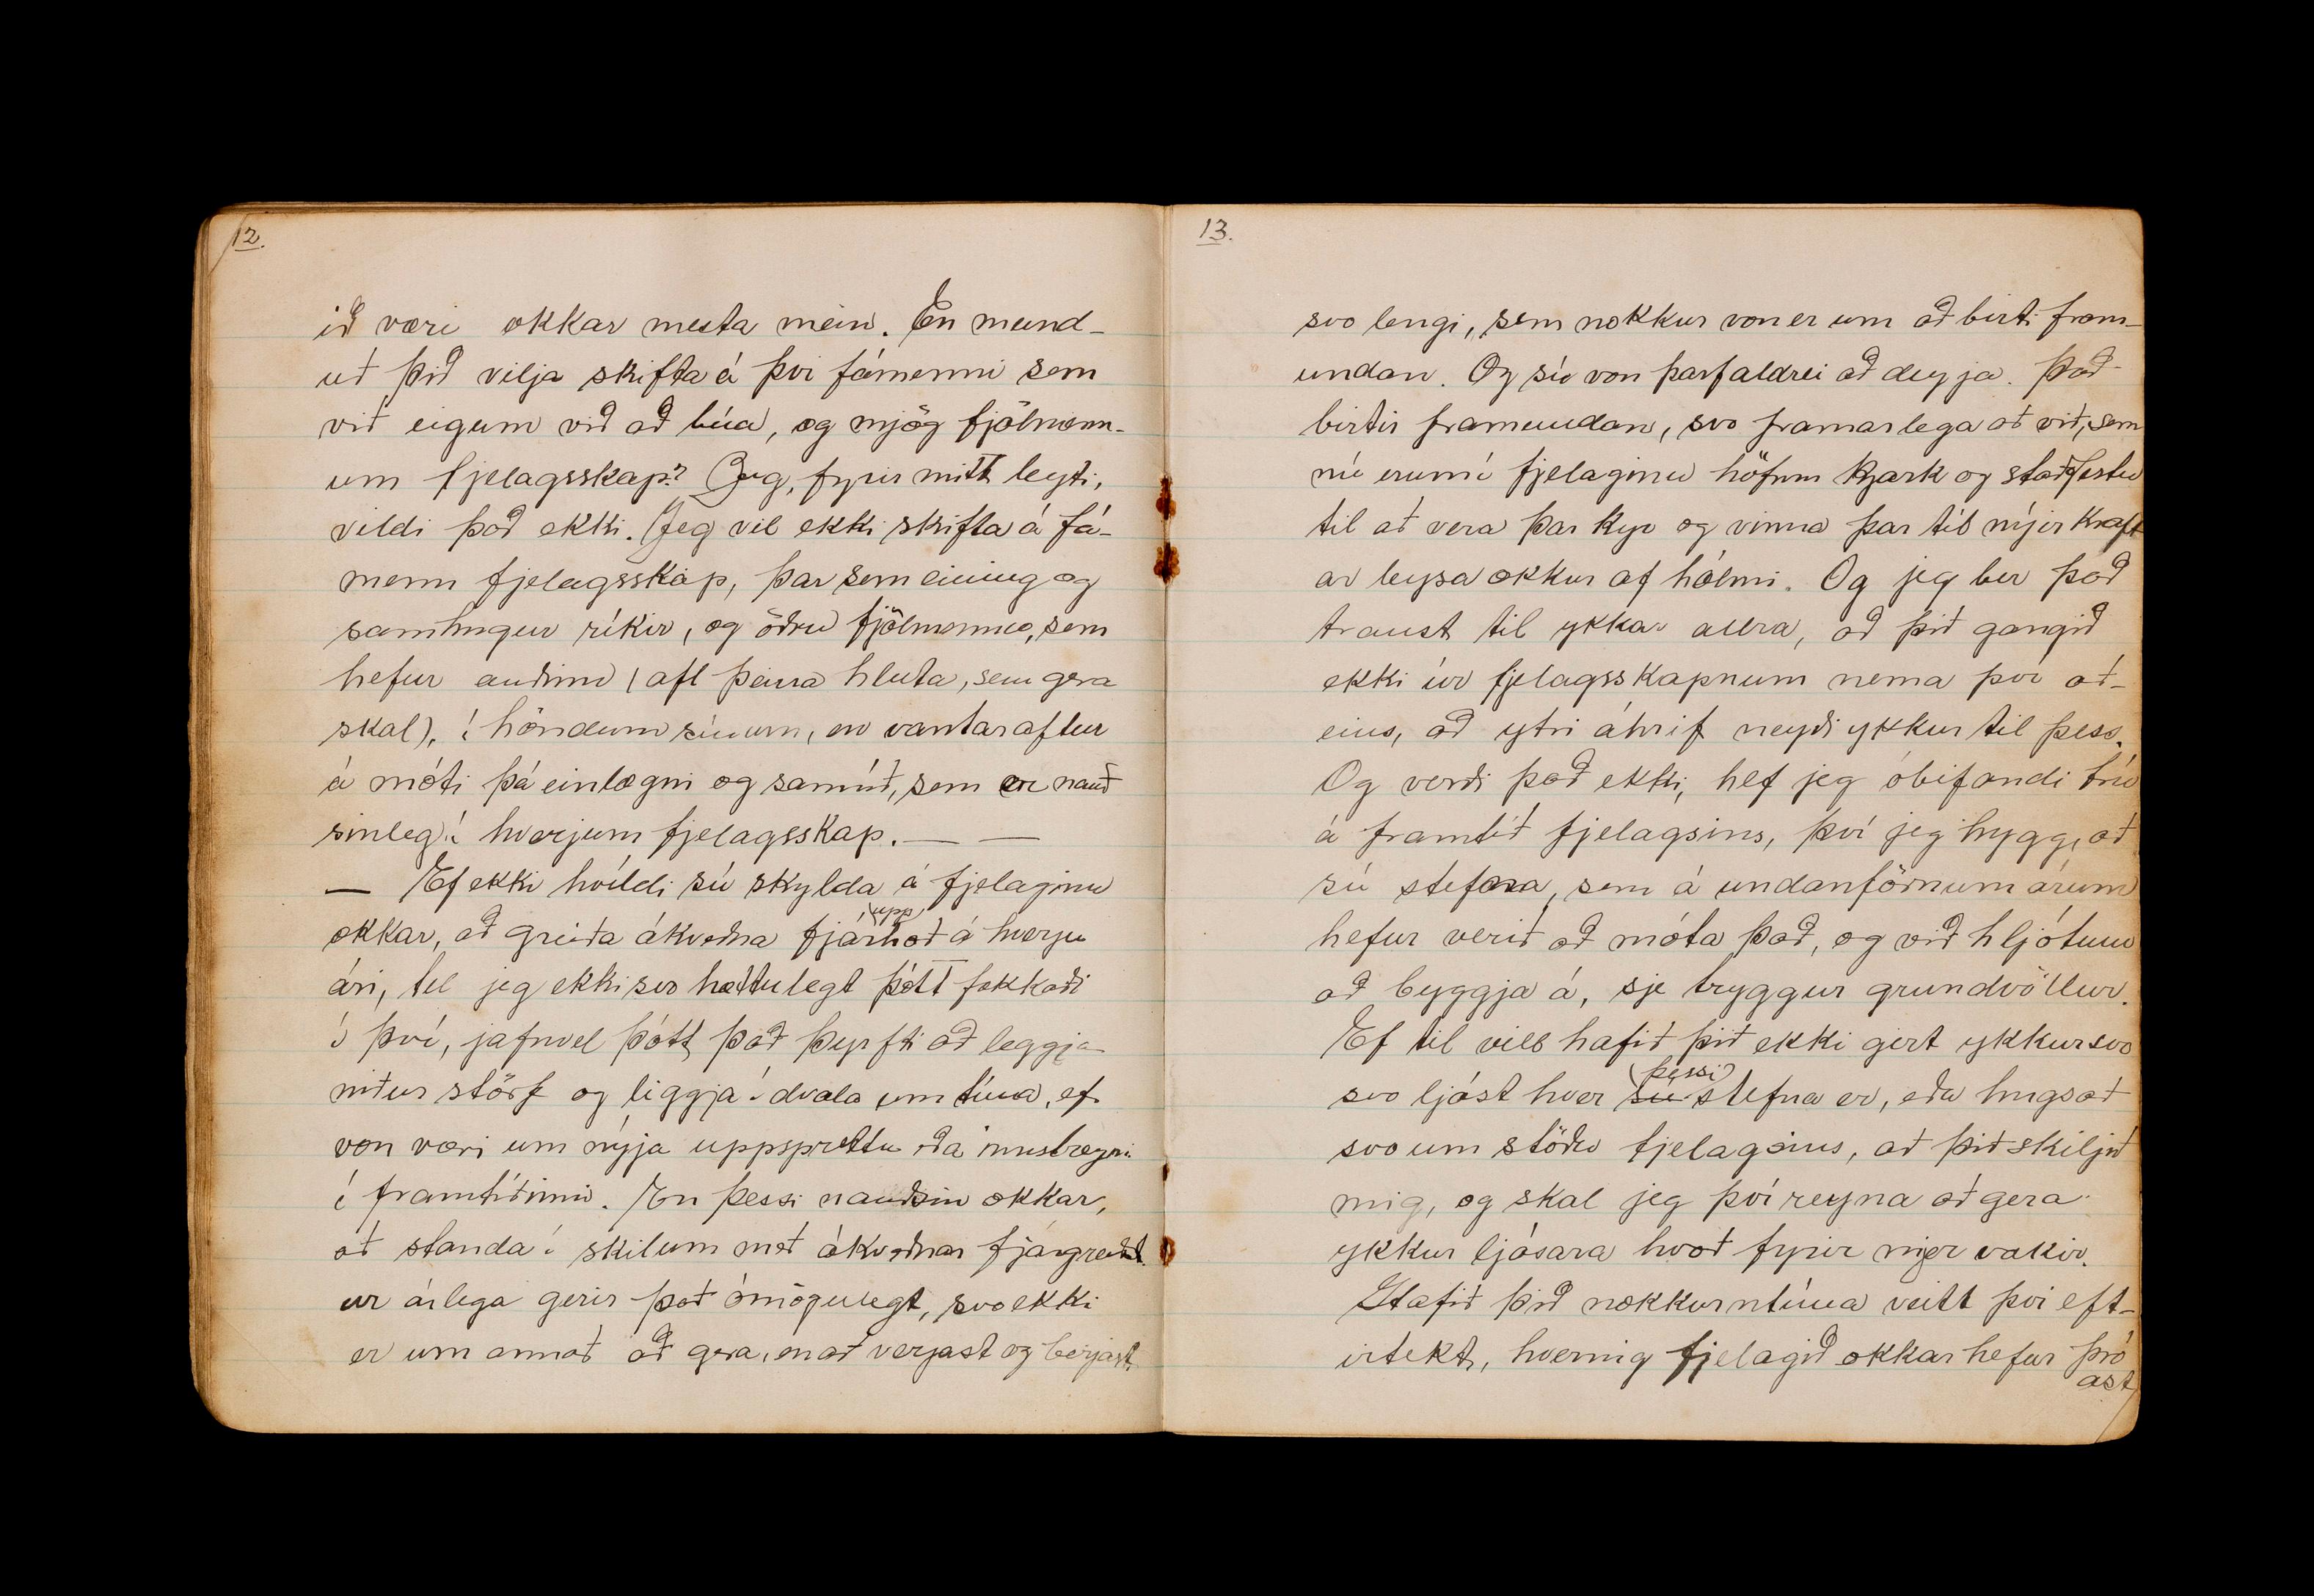 12.
ið væri okkar mesta mein. En mund-
uð þið vilja skifta á því fámenni sem
við eigum við að búa, og mjög fjölmenn-
um fjelagsskap? Jeg, fyrir mitt leyti,
vildi það ekki. Jeg vil ekki skifta á fá-
menn fjelagsskap, þar sem eining og
samhugur ríkir, og öðru fjölmennu, sem
hefur auðinn (afl þeirra hluta, sem gera
skal), í höndum sínum, en vantar aftur
á móti þá einlægni og samúð, sem er nauð
sinleg í hverjum fjelagsskap. — —
— Ef ekki hvíldi sú skylda á fjelaginu
okkar, að greiða ákveðna fjár(upp)hæð á hverju
ári, tel jeg ekki svo hættulegt þótt fækkaði
í því, jafnvel þótt það þyrfti að leggja
niður störf og liggja í dvala um tíma, ef
von væri um nýja uppsprettu eða
í framtíðinni. En þessi nauðsin okkar,
að standa í skilum með ákveðnar fjárgreiðsl-
ur árlega gerir það ómögulegt, svo ekki
er um annað að gera, en að verjast og berjast
13.
svo lengi, sem nokkur von er um að birti fram-
undan. Og sú von þarf aldrei að deyja. Það
birtir framundan, svo framarlega að við, sem
nú erum í fjelaginu höfum kjark og staðfestu
til að vera þar kyr og vinna þar til nýjir kraft
ar leysa okkur af hólmi. Og jeg ber það
traust til ykkar allra, að þið gangið
ekki úr fjelagsskapnum nema því að-
eins, að ytri áhrif neyði ykkur til þess.
Og verði það ekki, hef jeg óbifandi trú
á framtíð fjelagsins, því jeg hygg, að
sú stefna, sem á undanförnum árum
hefur verið að móta það, og við hljótum
að byggja á, sje tryggur grundvöllur.
Ef til vill hafið þið ekki gert ykkur svo
svo ljóst hver sú (þessi) stefna er, eða hugsað
svo um stöðu fjelagsins, að þið skiljið
mig, og skal jeg því reyna að gera
ykkur ljósara hvað fyrir mjer vakir.
Hafið þið nokkurntíma veitt því eft-
irtekt, hvernig fjelagið okkar hefur þró
ast